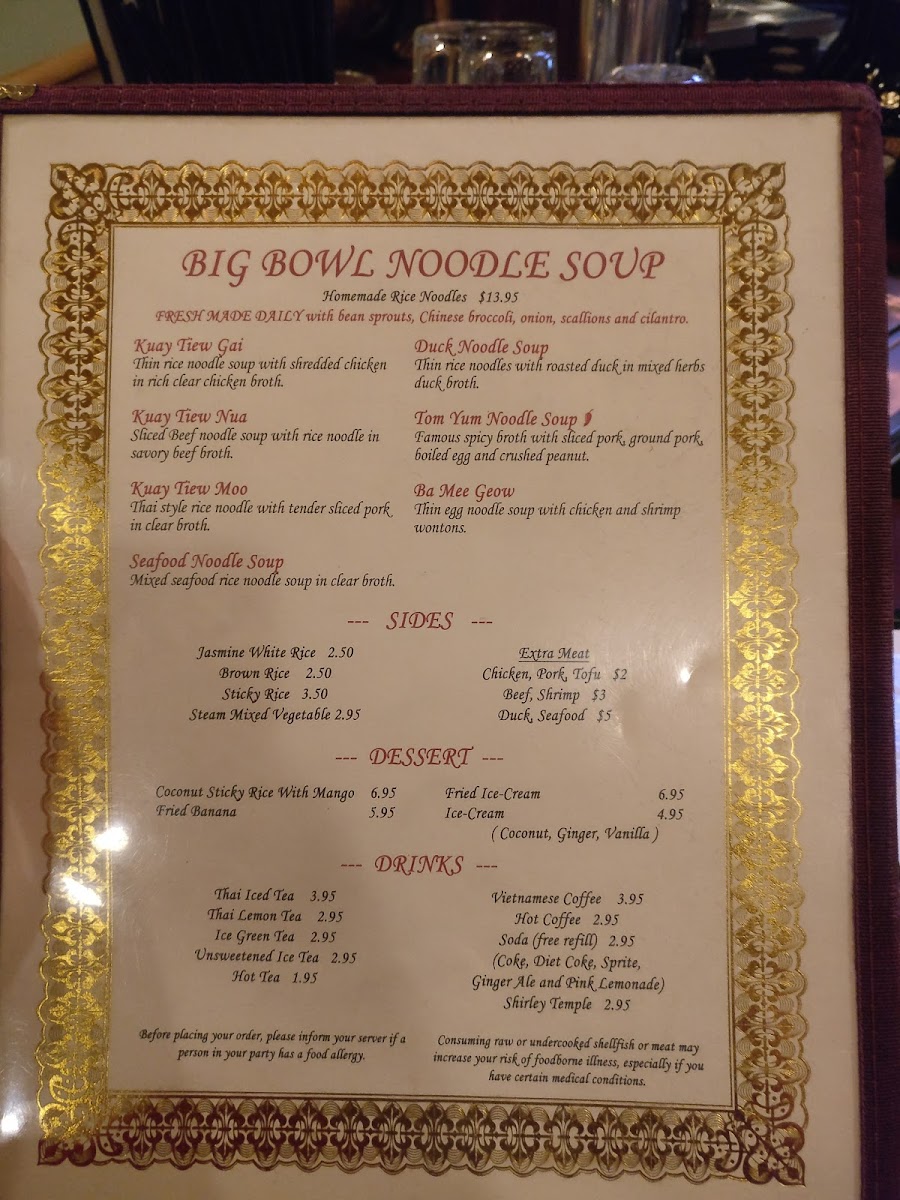 BIG BOWL NOODLE SOUP
Homemade Rice Noodles $13.95
FRESH MADE DAILY with bean sprouts, Chinese broccoli, onion, scallions and cilantro.
Kuay Tiew Gai
Thin rice noodle soup with shredded chicken
in rich clear chicken broth.
Kuay Tiew Nua
Sliced Beef noodle soup with rice noodle in
savory beef broth.
Kuay Tiew Moo
Thai style rice noodle with tender sliced pork
in clear broth.
Seafood Noodle Soup
Mixed seafood rice noodle soup in clear broth.
Duck Noodle Soup
Thin rice noodles with roasted duck in mixed herbs
duck broth.
Tom Yum Noodle Soup
Famous spicy broth with sliced pork, ground pork,
boiled egg and crushed peanut.
Ba Mee Geow
Thin egg noodle soup with chicken and shrimp
wontons.
--- SIDES ---
Jasmine White Rice 2.50
Brown Rice 2.50
Sticky Rice 3.50
Steam Mixed Vegetable 2.95
Extra Meat
Chicken, Pork, Tofu $2
Beef, Shrimp $3
Duck, Seafood $5
--- DESSERT ---
Coconut Sticky Rice With Mango 6.95
Fried Banana 5.95
Fried Ice-Cream 6.95
Ice-Cream 4.95
( Coconut, Ginger, Vanilla )
--- DRINKS ---
Thai Iced Tea 3.95
Thai Lemon Tea 2.95
Ice Green Tea 2.95
Unsweetened Ice Tea 2.95
Hot Tea 1.95
Vietnamese Coffee 3.95
Hot Coffee 2.95
Soda (free refill) 2.95
(Coke, Diet Coke, Sprite,
Ginger Ale and Pink Lemonade)
Shirley Temple 2.95
Before placing your order, please inform your server if a
person in your party has a food allergy.
Consuming raw or undercooked shellfish or meat may
increase your risk of foodborne illness, especially if you
have certain medical conditions.